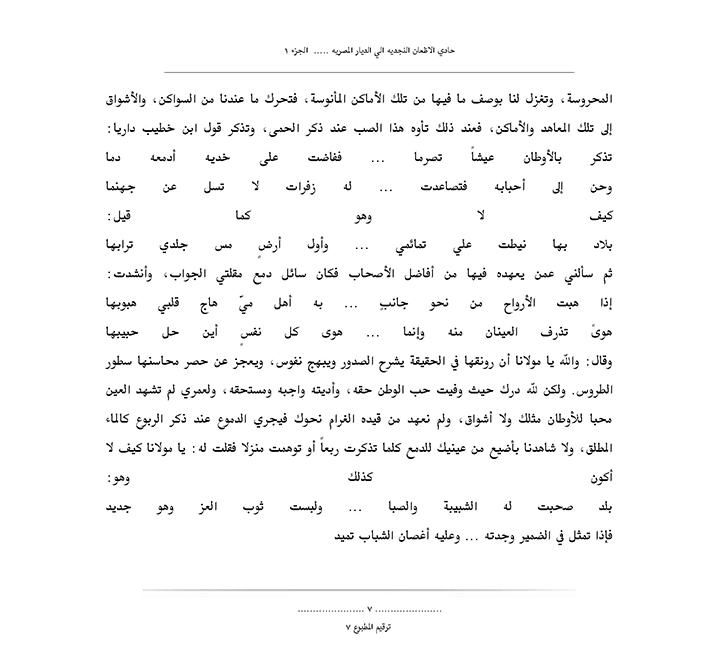 حادي الاظعان النجديه الي الديار المصريه ..... الجزء ١
المحروسة، وتغزل لنا بوصف ما فيها من تلك الأماكن المأنوسة، فتحرك ما عندنا من السواكن، والأشواق
إلى تلك المعاهد والأماكن، فعند ذلك تأوه هذا الصب عند ذكر الحمى، وتذكر قول ابن خطيب داريا:
تذكر بالأوطان عيشاً تصرما ... ففاضت على خديه أدمعه دما
وحن إلى أحبابه فتصاعدت ... له زفرات لا تسل عن جهنما
كيف لا وهو كما قيل:
بلاد بها نيطت علي تمائمي ... وأول أرضٍ مس جلدي ترابها
ثم سألني عمن يعهده فيها من أفاضل الأصحاب فكان سائل دمع مقلتي الجواب، وأنشدت:
إذا هبت الأرواح من نحو جانبٍ ... به أهل ميّ هاج قلبي هبوبها
هوىً تذرف العينان منه وإنما ... هوى كل نفسٍ أين حل حبيبها
وقال: والله يا مولانا أن رونقها في الحقيقة يشرح الصدور ويبهج نفوس، ويعجز عن حصر محاسنها سطور
الطروس. ولكن لله درك حيث وفيت حب الوطن حقه، وأديته واجبه ومستحقه، ولعمري لم تشهد العين
محبا للأوطان مثلك ولا أشواق، ولم نعهد من قيده الغرام نحوك فيجري الدموع عند ذكر الربوع كالماء
المطلق، ولا شاهدنا بأضيع من عينيك للدمع كلما تذكرت ربعاً أو توهمت منزلا فقلت له: يا مولانا كيف لا
أكون كذلك وهو:
بلد صحبت له الشبيبة والصبا ... ولبست ثوب العز وهو جديد
فإذا تمثل في الضمير وجدته ... وعليه أغصان الشباب تميد
...................... ٧ ......................
ترقيم المطبوع ٧